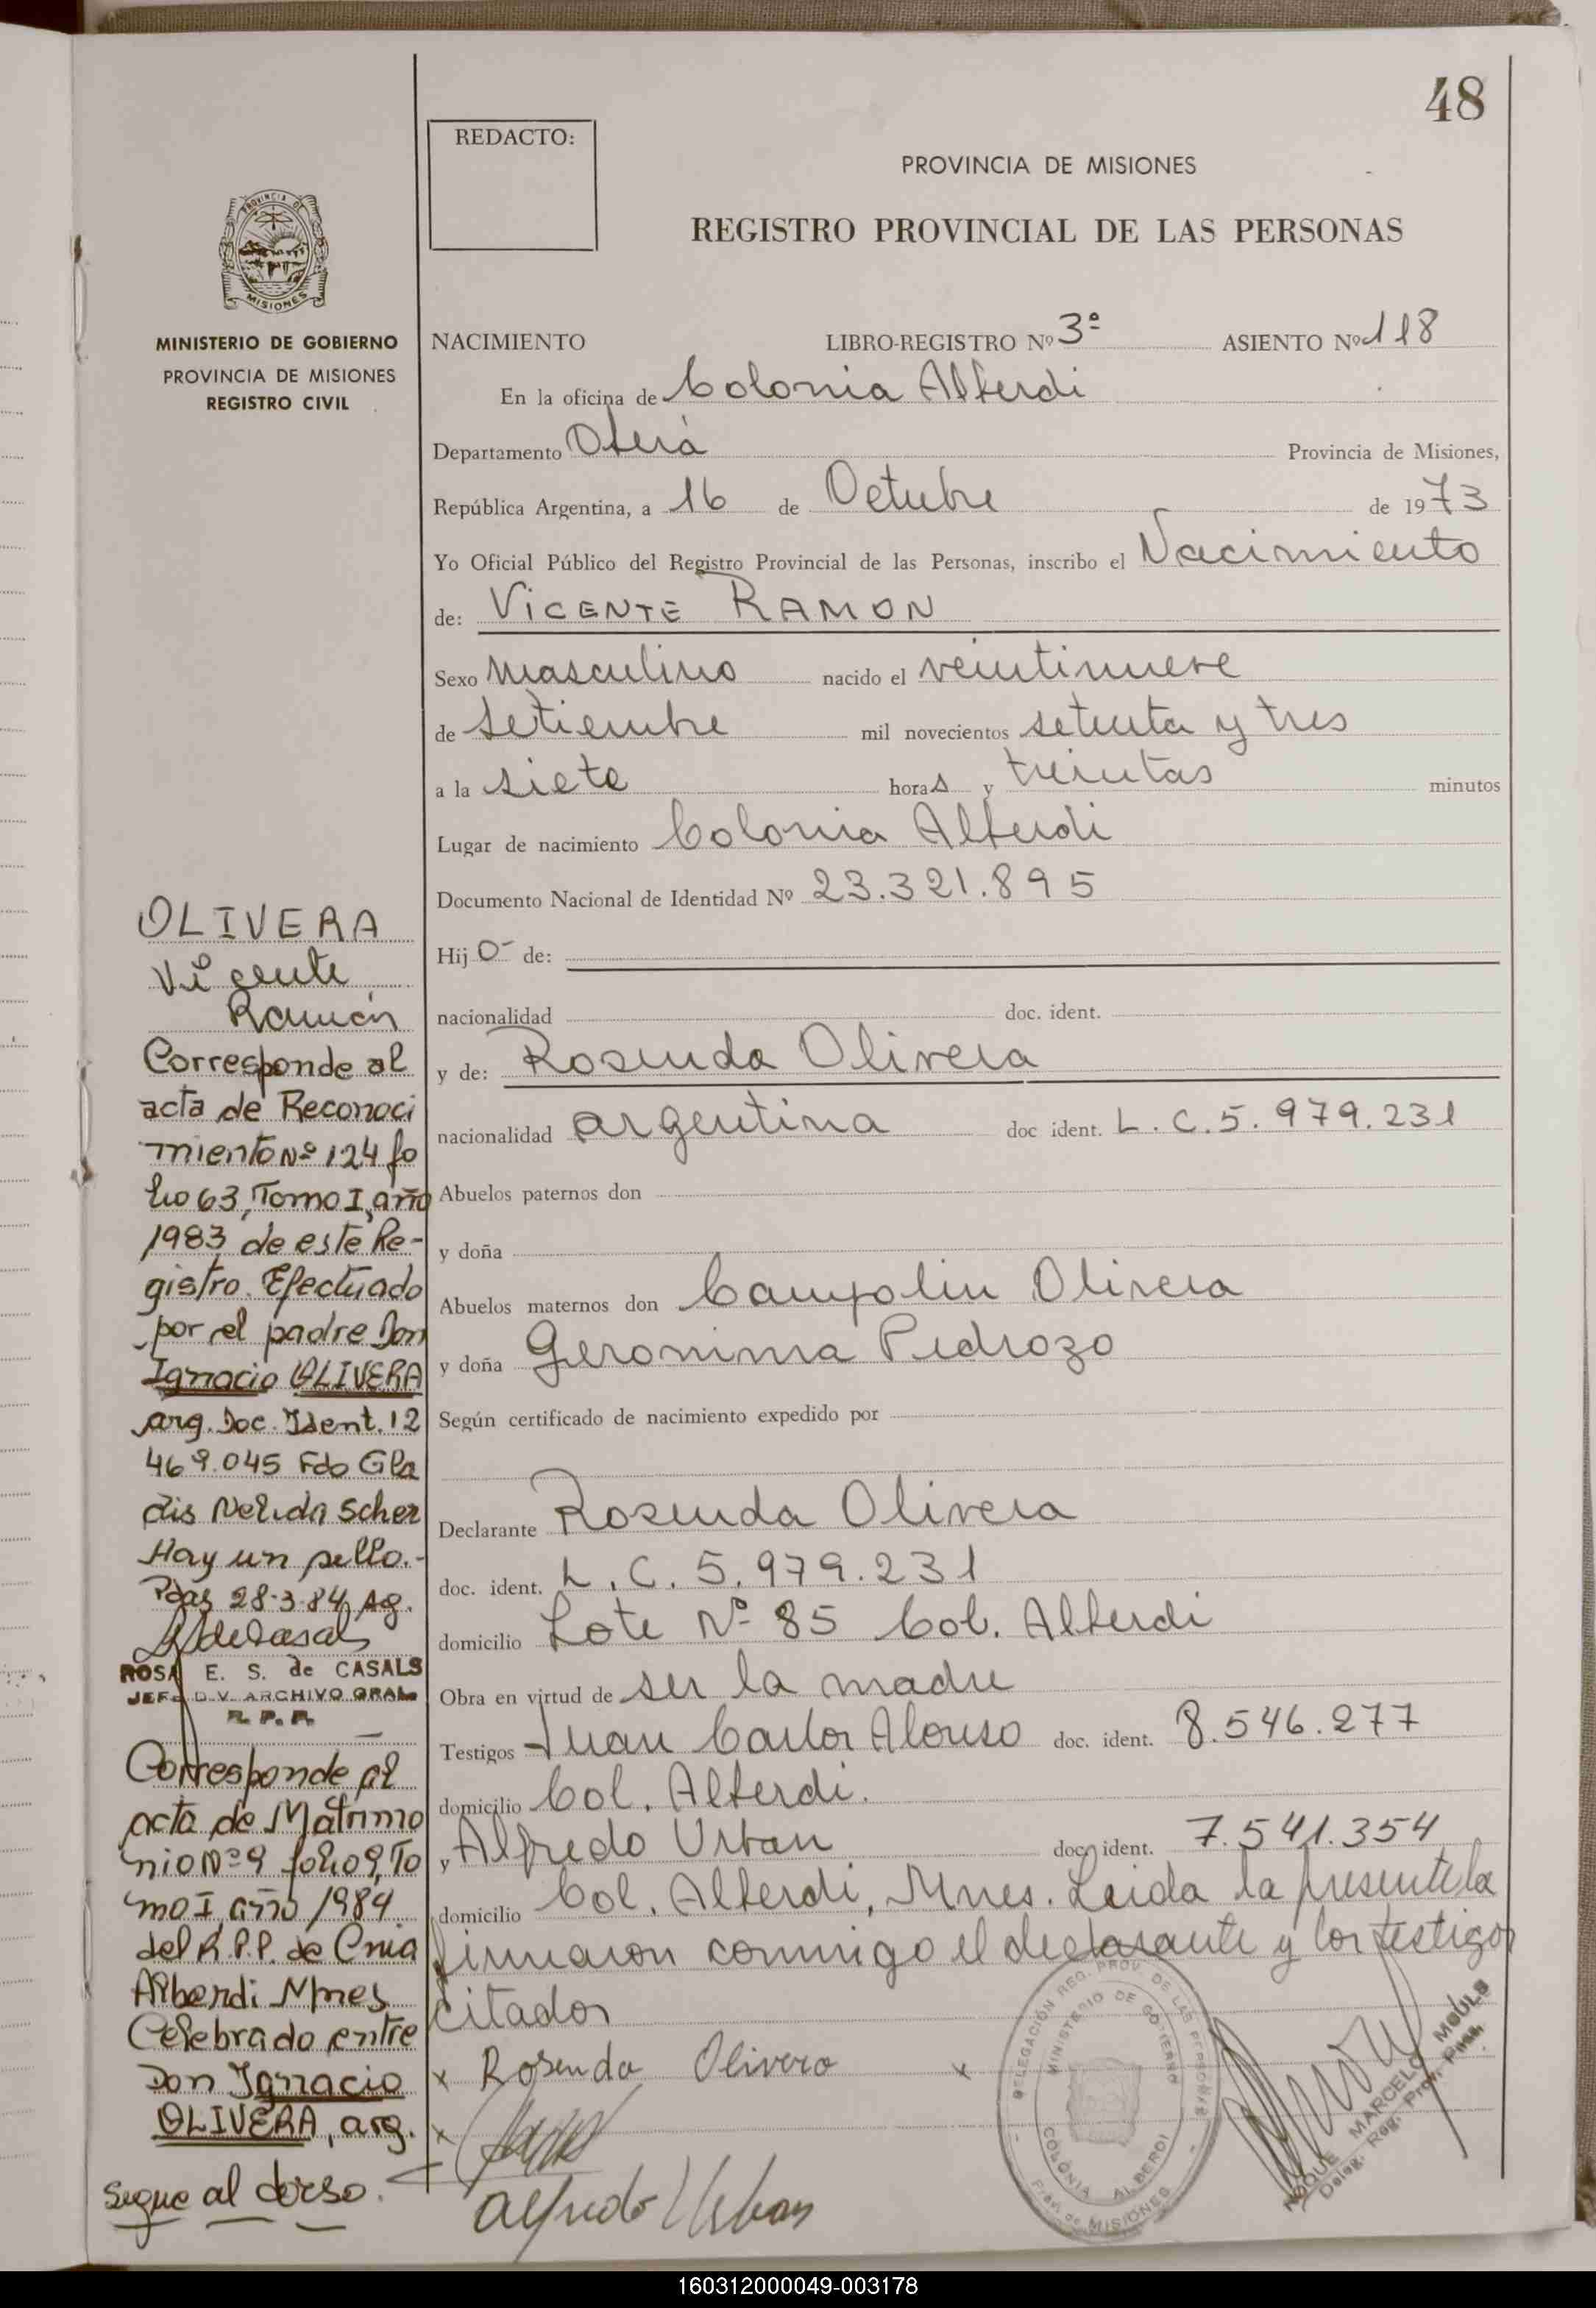 48
REDACTO:
PROVINCIA DE MISIONES
REGISTRO PROVINCIAL DE LAS PERSONAS
PROVINCIA DE
MISIONES
MINISTERIO DE GOBIERNO
PROVINCIA DE MISIONES
REGISTRO CIVIL
NACIMIENTO LIBRO-REGISTRO Nº 3º ASIENTO Nº 118
En la oficina de Colonia Alberdi
Departamento Oberá Provincia de Misiones,
República Argentina, a 16 de Octubre de 1973
Yo Oficial Público del Registro Provincial de las Personas, inscribo el Nacimiento
de: VICENTE RAMON
Sexo masculino nacido el veintinueve
de setiembre mil novecientos setenta y tres
a la siete horas y treintas minutos
Lugar de nacimiento Colonia Alberdi
Documento Nacional de Identidad Nº 23.321.895
Hijo de:
nacionalidad doc. ident.
y de: Rosenda Olivera
nacionalidad argentina doc ident. L.C. 5.979.231
Abuelos paternos don
y doña
Abuelos maternos don Campolin Olivera
y doña Geronima Pedrozo
Según certificado de nacimiento expedido por
Declarante Rosenda Olivera
doc. ident. L.C. 5.979.231
domicilio Lote Nº 85 Col. Alberdi
Obra en virtud de ser la madre
Testigos Juan Carlos Alonso doc. ident. 8.546.277
domicilio Col. Alberdi.
y Alfredo Urban doc. ident. 7.541.354
domicilio Col. Alberdi, Mnes. Leida la presente la
firmaron conmigo el declarante y los testigos
citados
x Rosenda Olivera x
x
Alfredo Urban
DELEGACIÓN REG. PROV. DE LAS PERSONAS
MINISTERIO DE GOBIERNO
COLONIA ALBERDI
Prov. de MISIONES
ROQUE MARCELO MOULS
Deleg. Reg. Prov. Pers.
OLIVERA
Vicente
Ramón
Corresponde al
acta de Reconoci
miento Nº 124 fo
lio 63, Tomo I, año
1983 de este Re-
gistro. Efectuado
por el padre Don
Ignacio OLIVERA
arg. Doc. Ident. 12
469.045 Fdo Gla
dis Nelida Scher
Hay un sello.-
Pdas 28-3-84 Ag.
ROSA E. S. de CASALS
JEFE DIV. ARCHIVO GRAL.
R. P. P.
Corresponde al
acta de Matrimo
nio Nº 9 folio 9, To
mo I año 1984
del R.P.P. de Cnia
Alberdi Mnes
Celebrado entre
Don Ignacio
OLIVERA, arg.
Sigue al dorso.
160312000049-003178